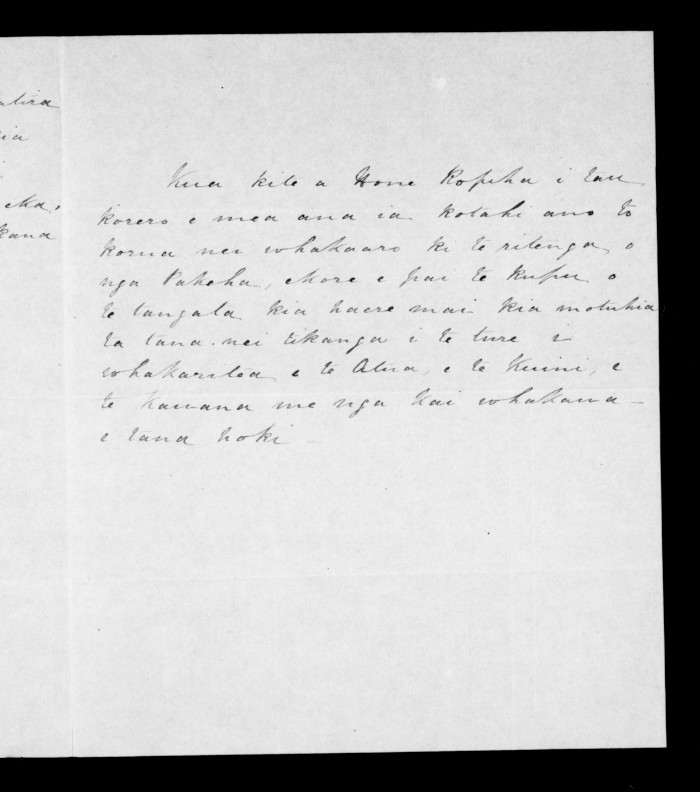 atira
ia
eka,
kana
Kua kite a Hone Ropiha i tau
korero e mea ana ia kotahi ano to
korua nei whakaaro ki te ritenga o
nga Pakeha, ekore e pai te kupu o
te tangata kia haere mai kia motuhia
ta tana nei tikanga i te ture i
whakaritea e te Atua, e te Kuini, e
te Kawana me nga Kai whakawa –
e tana hoki –